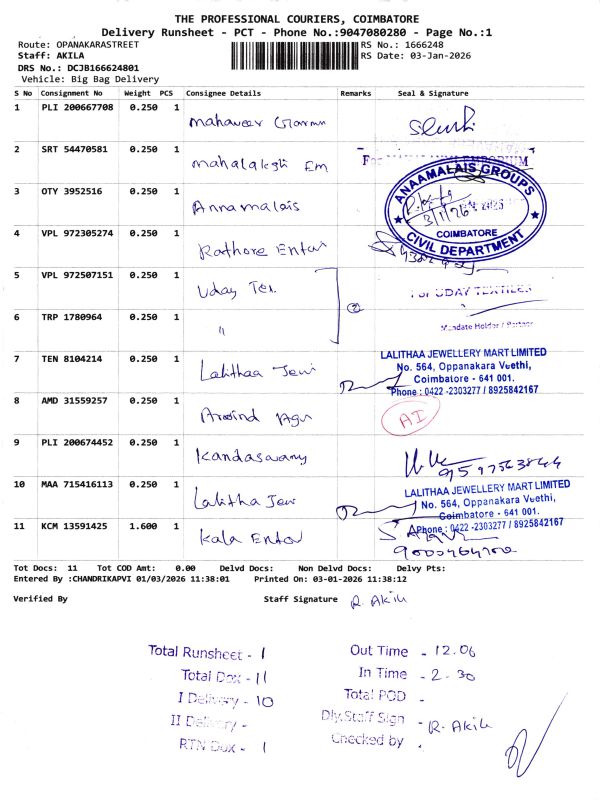 THE PROFESSIONAL COURIERS, COIMBATORE
Delivery Runsheet - PCT - Phone No.:9047080280 - Page No.:1
Route: OPANAKARASTREET
RS No.: 1666248
Staff: AKILA
RS Date: 03-Jan-2026
DRS No.: DCJB166624801
Vehicle: Big Bag Delivery
S No Consignment No Weight PCS Consignee Details Remarks Seal & Signature
1 PLI 200667708 0.250 1 Mahaveer
2 SRT 54470581 0.250 1 Mahalakshi Em
3 OTY 3952516 0.250 1 Annamalais
ANAAMALAIS GROUPS
3/1/26
COIMBATORE
CIVIL DEPARTMENT
4 VPL 972305274 0.250 1 Rathore
5 VPL 972507151 0.250 1 Uday Tex
For UDAY TEXTILES
6 TRP 1780964 0.250 1 "
2
Mandate Holder / Partner
7 TEN 8104214 0.250 1 Lalithaa Jew
LALITHAA JEWELLERY MART LIMITED
No. 564, Oppanakara Veethi,
Coimbatore - 641 001.
Phone : 0422 -2303277 / 8925842167
8 AMD 31559257 0.250 1 Arvind Agr
AI
9 PLI 200674452 0.250 1 Kandaswamy
10 MAA 715416113 0.250 1 Lalitha Jew
LALITHAA JEWELLERY MART LIMITED
No. 564, Oppanakara Veethi,
Coimbatore - 641 001.
Phone : 0422 -2303277 / 8925842167
11 KCM 13591425 1.600 1 Kala
Tot Docs: 11 Tot COD Amt: 0.00 Delvd Docs: Non Delvd Docs: Delvy Pts:
Entered By :CHANDRIKAPVI 01/03/2026 11:38:01 Printed On: 03-01-2026 11:38:12
Verified By Staff Signature R. Akila
Total Runsheet - 1
Out Time - 12.06
Total Dox - 11
In Time - 2.30
I Delivery - 10
Total POD -
II Delivery -
Dly.Staff Sign - R. Akila
RTN Dox - 1
Checked by -